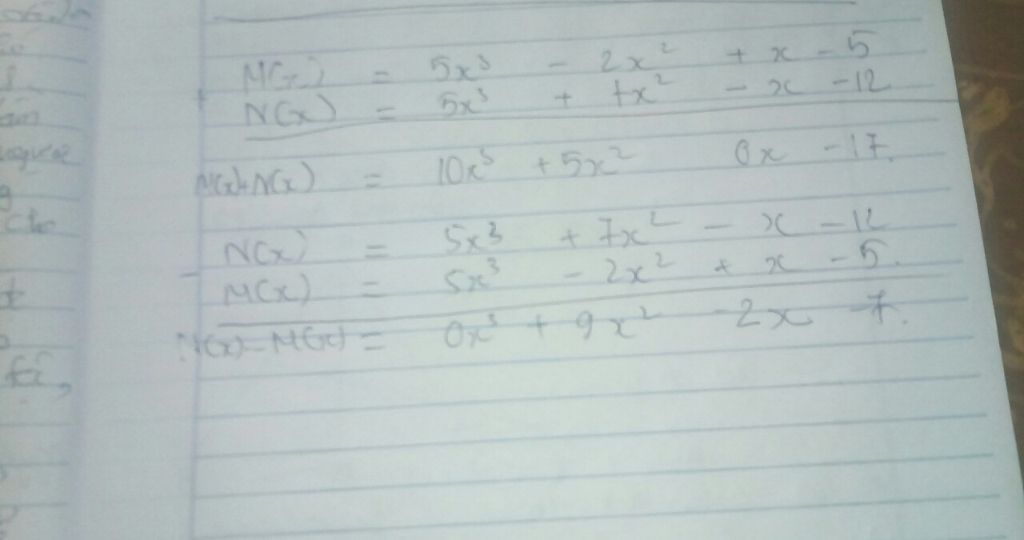 M(x) = 5x³ - 2x² + x - 5
+ N(x) = 5x³ + 7x² - x - 12
M(x)+N(x) = 10x³ + 5x² 0x - 17.
N(x) = 5x³ + 7x² - x - 12
- M(x) = 5x³ - 2x² + x - 5.
N(x) - M(x) = 0x³ + 9x² - 2x - 7.